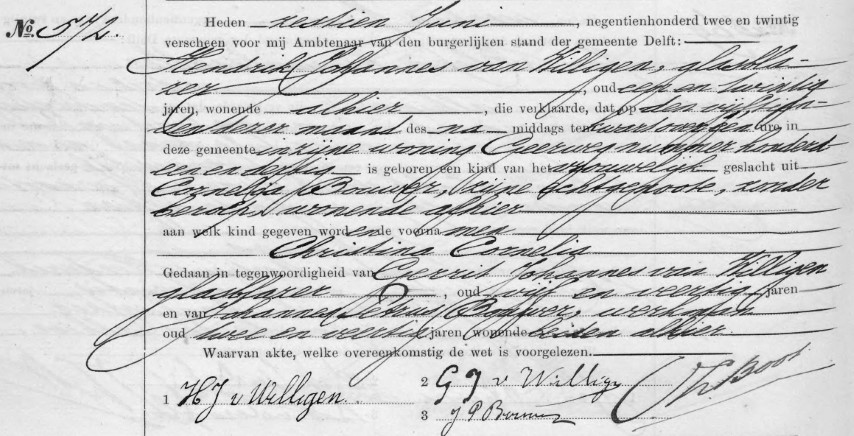 No. 572
Heden zestien Juni, negentienhonderd twee en twintig
verscheen voor mij Ambtenaar van den burgerlijken stand der gemeente Delft:
Hendrik Johannes van Willigen, glasbla-
zer, oud een en twintig
jaren, wonende alhier, die verklaarde, dat op den vijftien-
den dezer maand des na middags ten kwart over ure, in
deze gemeente in zijne woning Geerweg nummer honderd
een en dertig is geboren een kind van het vrouwelijk geslacht uit
Cornelia Bouwer, zijne echtgenoote, zonder
beroep, wonende alhier
aan welk kind gegeven worden de voornamen
Christina Cornelia
Gedaan in tegenwoordigheid van Gerrit Johannes van Willigen
glasblazer, oud vijf en veertig jaren
en van Johannes Petrus Bouwer, werkman
oud twee en veertig jaren, wonende beiden alhier
Waarvan akte, welke overeenkomstig de wet is voorgelezen.
1 H J v Willigen
2 G J v Willigen
3 J P Bouwer